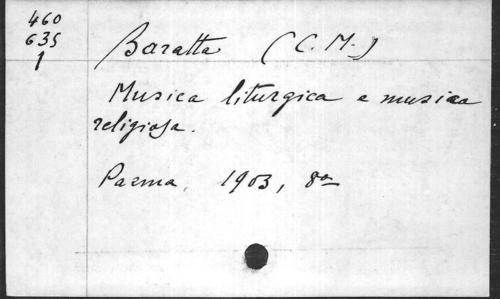 460
635
1
Baratta (C. M.)
Musica liturgica e musica
religiosa.
Parma, 1903, 8º